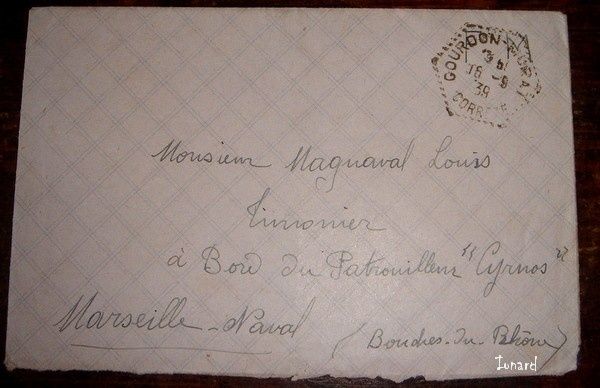 GOURDON-MURAT
16 -9
39
CORREZE
Monsieur Magnaval Louis
Timonier
à Bord du Patrouilleur "Cyrnos"
Marseille-Naval
(Bouches-du-Rhône)
Lunard